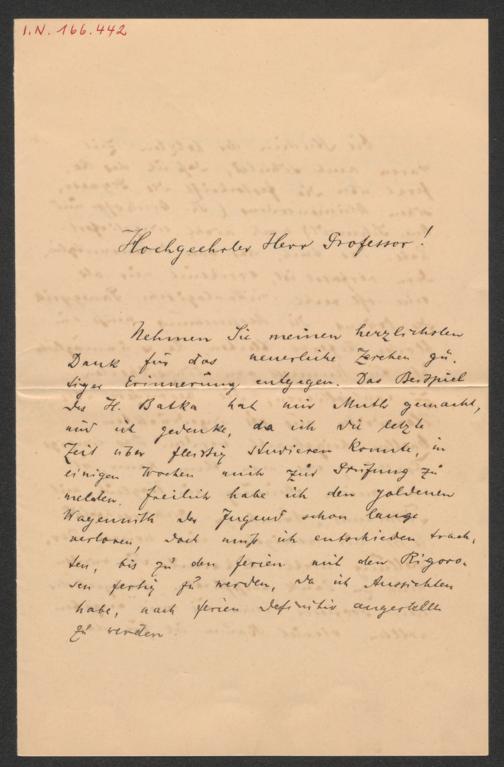 I.N. 166.442
Hochgeehrter Herr Professor!
Nehmen Sie meinen herzlichsten
Dank für das neuerliche Zeichen gü-
tiger Erinnerung entgegen. Das Beispiel
des H. Batka hat mir Muth gemacht,
und ich gedenke, da ich die letzte
Zeit über fleißig studieren konnte, in
einigen Wochen mich zur Prüfung zu
melden. Freilich habe ich den goldenen
Wagemuth der Jugend schon lange
verloren, doch muß ich entschieden trach-
ten, bis zu den Ferien mit den Rigoro-
sen fertig zu werden, da ich Aussichten
habe, nach Ferien definitiv angestellt
zu werden